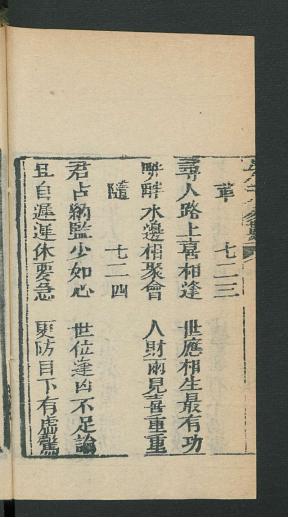 革 七二三
尋人路上喜相逢 世應相生最有功
水邊相聚會 人財兩見喜重重
隨 七二四
君占納監少如心 世位逢凶不足論
且自遲遲休要急 更防目下有虛驚